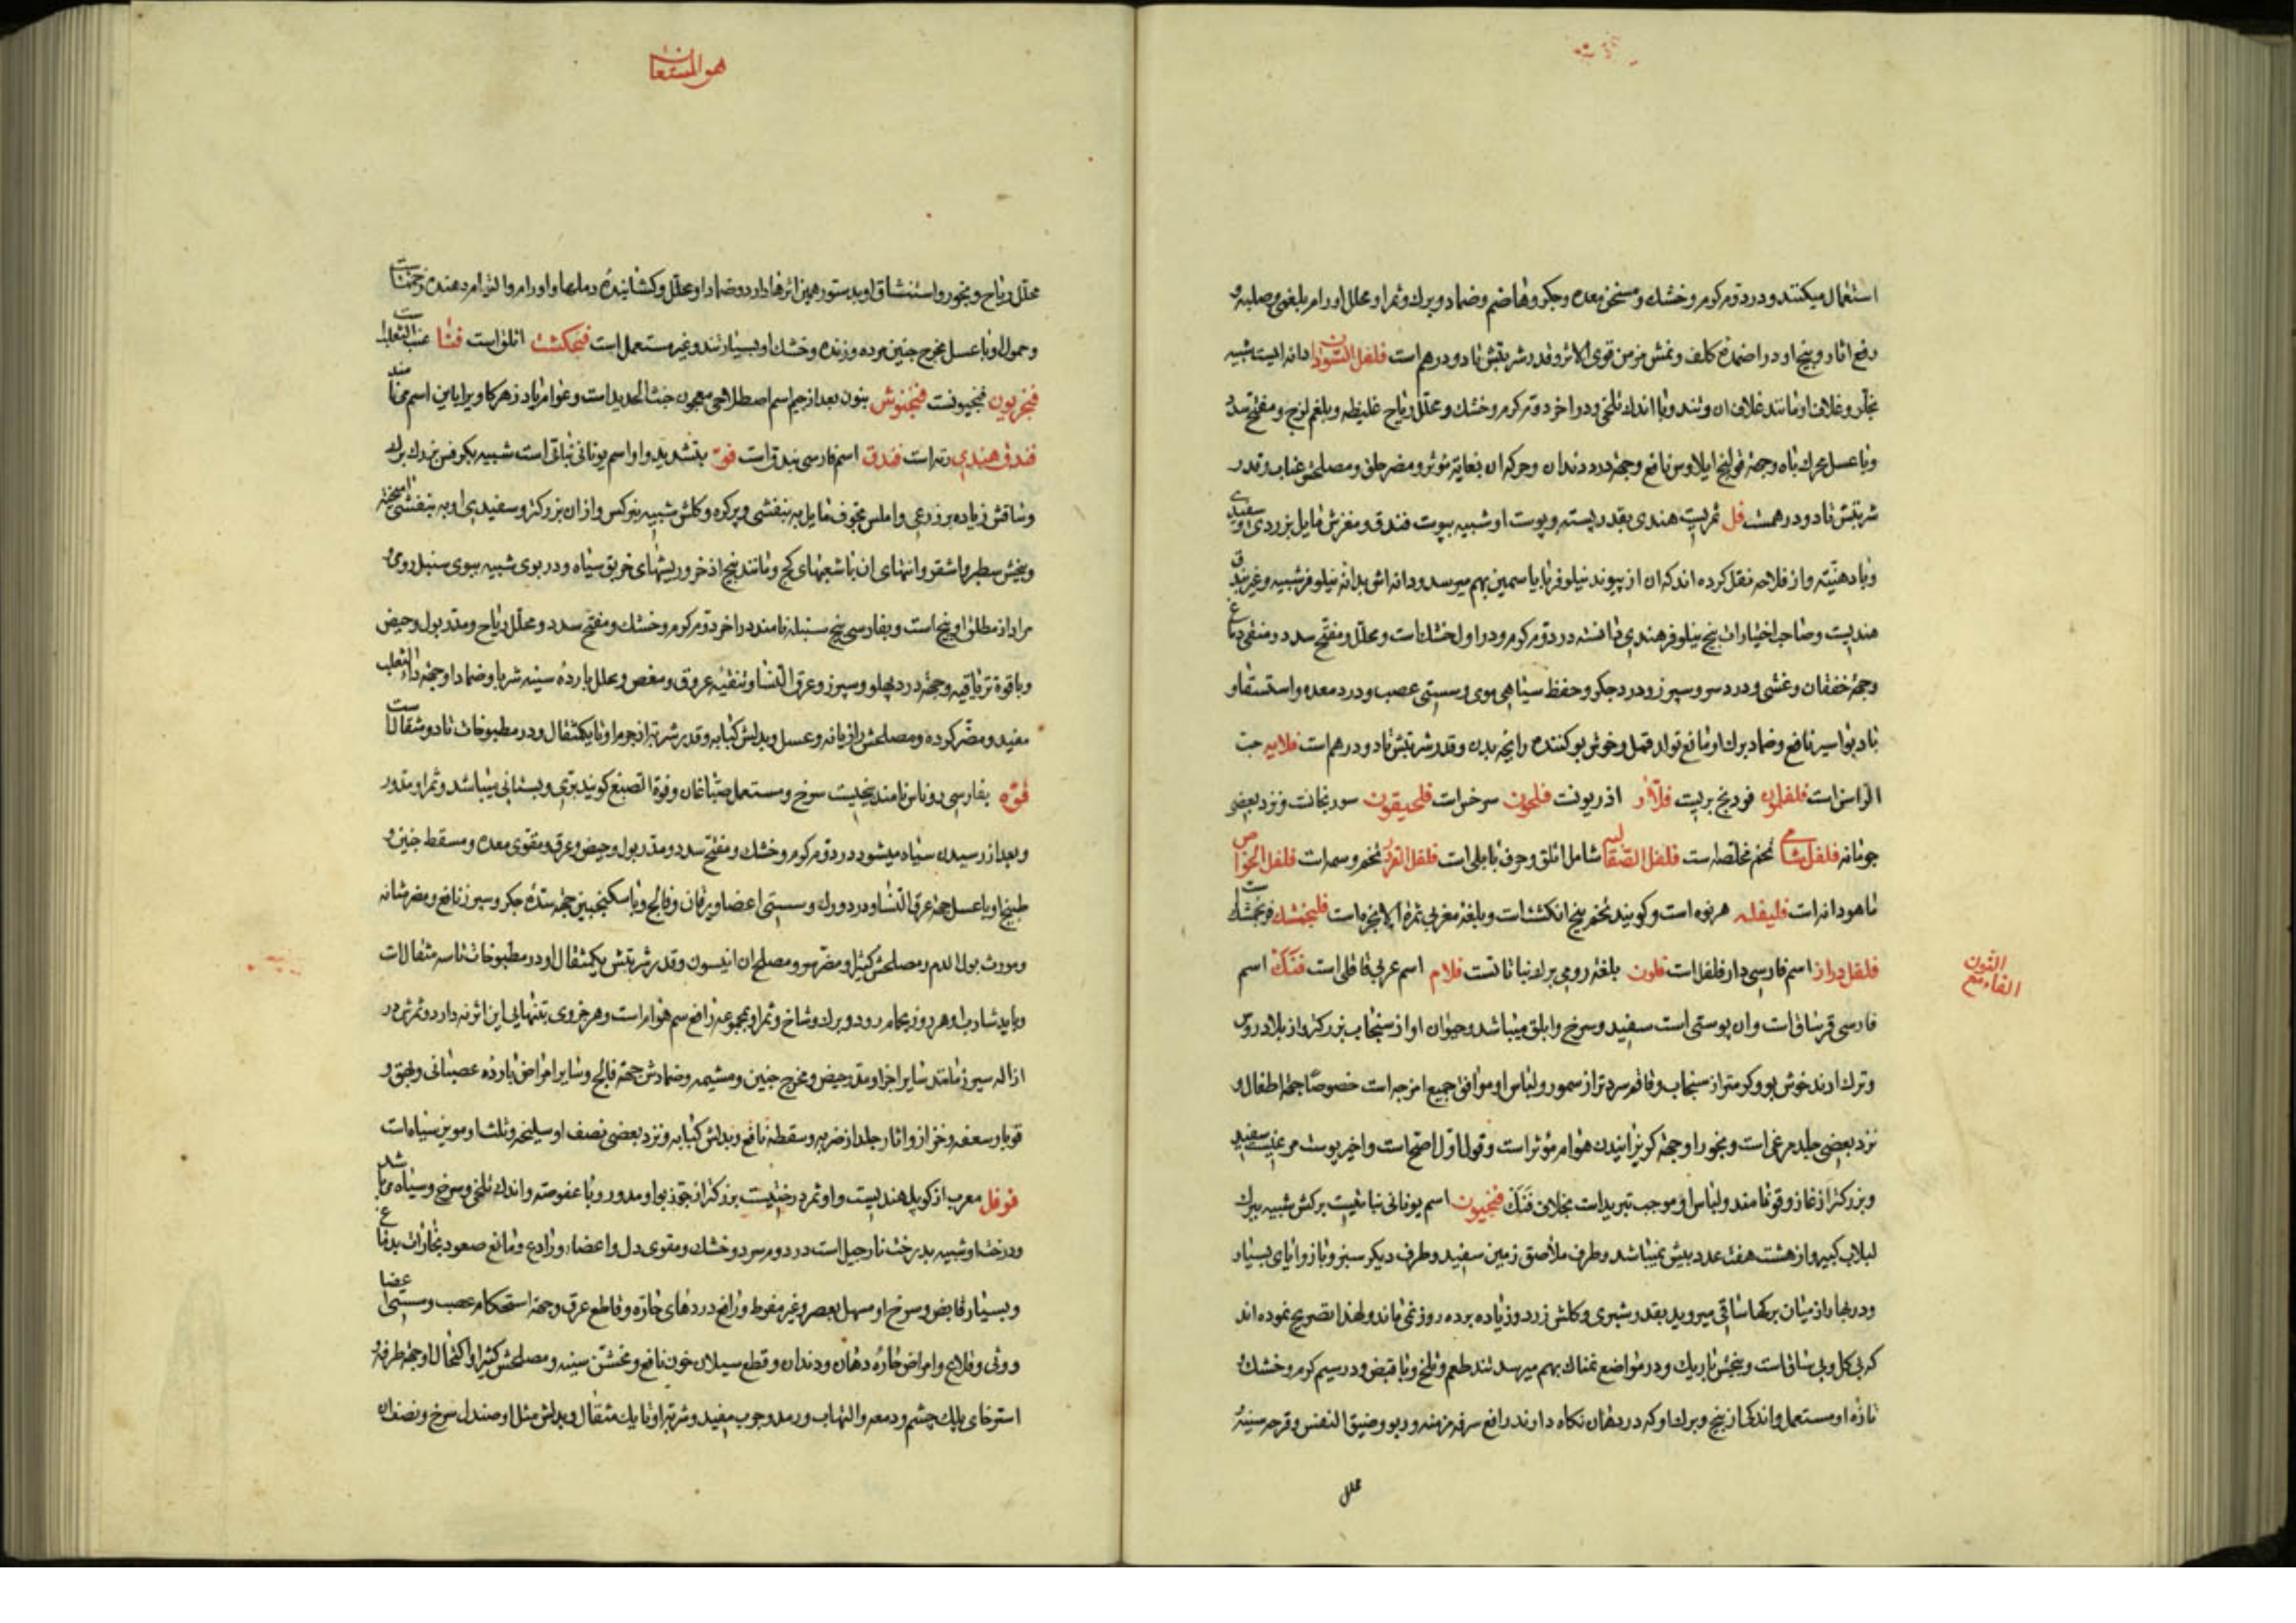 استعمال میکنند و در دوم کرم و خشک و مسخن معده و جکر و هاضم و ضماد و برک و ثمر او محلل اورام بلغمی و صلبه و
رفع اثار و بیخ او در اضمده کلف و نمش مزمن قوی الاثر و قدر شربتش تا دو درهم است فلفل السودان دانه ایست شبیه
بجلّر و غلاف او مانند غلاف ان و تند و با اندک تلخی و در اخر دوم کرم و خشک و محلّل ریاح غلیظه و بلغم لزج و مفتح سدد
و با عسل محرک باه و جهة قولنج ایلاوس نافع و جهة درد دندان و حرکه ان بغایة مؤثر و مضر حلق و مصلحش عناب و قدر
شربتش تا دو درهمست فل ثمریست هندی بقدر پسته و پوست او شبیه بپوست فندق و مغزش مایل بزردی و سفیدی
و با دهنیّته و از فلاحه نقل کرده اند که ان از پیوند نیلوفر با یاسمین بهم میرسد و دانه اش بدانه نیلوفر شبیه و غیر بندق
هندیست و صاحب اختیارات بیخ نیلوفر هندی دانسته در دوم کرم و در اول خشک است و محلل و مفتّح سدد و منقی دماغ
و جهة خفقان و غشی و درد سر و سپرز و درد جکر و حفظ سیاهی موی و سستی عصب و درد معده و استسقا و
باد بواسیر نافع و ضماد برک او مانع تولد قمل و خوش بو کننده رایحه بدن و قدر شربتش تا دو درهم است فلابیه حب
الراس است فلفلون فودنج بریست فلآذر اذریونست فلحون سرخس است فلحیقون سورنجانست و نزد بعضی
جوشانه فلفل شامی تخم مخلصه است فلفل الصقالبه شامل اثلق و حرف بابلی است فلفل القرود تخم وسمه است فلفل الخواص
ماهودانه است فلیفله هرنوه است و کویند تخم پنج انکشت است و بلغة مغربی ثمرة الانجره است فلیجنشک فرنجمشک است
فلفل دراز اسم فارسی دار فلفل است فلون بلغة رومی برک نباتاتست فلام اسم عربی قاقلی است فنک اسم
الفاء مع النون
فارسی قرساق است و ان پوستی است سفید و سرخ و ابلق میباشد و حیوان او از سنجاب بزرکتر و از بلاد روس
و ترک ارند خوش بو و کرمتر از سنجاب و قاقم سردتر از سمور و لباس او موافق جمیع امزجه است خصوصا جهة اطفال و
نزد بعضی جلد مرغی است و بخور او جهة کریزانیدن هوام مؤثر است و قول اول اصح است و اخیر پوست مرغیست سفید
و بزرکتر از غاز و قو نامند و لباس او موجب تبرید است بخلاف فنک فنجیون اسم یونانی نباتیست برکش شبیه ببرک
لبلاب کبیر و از هشت هفت عدد بیش نمیباشد و طرف ملاصق زمین سفید و طرف دیکر سبز و با زوایای بسیار
و در بهار از میان برکها ساقی میروید بقدر شبری و کلش زرد و زیاده بر ده روز نمی ماند و لهذا تصریح نموده اند
که بی کل و بی ساق است و بیخش باریک و در مواضع نمناک بهم میرسد تند طعم و تلخ و با قبض و در سیم کرم و خشک و
تازه او مستعمل و اندکی از بیخ و برک او که در دهان نکاه دارند رافع سرفه مزمنه و ربو و ضیق النفس و قرحه سینه و
محلل
هو المستعان
محلّل ریاح و بخور و استنشاق او بدستور همین اثرها دارد و ضماد او محلل و کشاینده دملها و اورام و التیام دهنده زخمهاست
و حمول او با عسل مخرج جنین مرده و زنده و خشک او بسیار تند و غیر مستعمل است فنجکشت اثلق است فنثا عنب الثعلب است
فنجریون فنجیونست فنجنوش بنون بعد از جیم اسم اصطلاحی معجون خبث الحدید است و عوام پادزهر کاویرا باین اسم می نامند
فندق هندی رته است فندق اسم فارسی بندق است فوّ بتشدید واو اسم یونانی نباتی است شبیه بکرفس بزرک برک
و ساقش زیاده بر ذرعی و املس مجوف مایل به بنفشی و پرکره و کلش شبیه بنرکس و از ان بزرکتر و سفیدی او به بنفشی امیخته
و بیخش سطبر و اشقر و انتهای ان با شعبهای کج و مانند بیخ اذخر و ریشهای خربق سیاه و در بوی شبیه ببوی سنبل رومی و
مراد از مطلق او بیخ است و بفارسی بیخ سنبله نامند در اخر دوم کرم و خشک و مفتح سدد و محلل ریاح و مدر بول و حیض
و با قوة تریاقیه و جهة درد پهلو و سپرز و عرق النسا و تنقیه عروق و مغص و علل بارده سینه شربا و ضمادا و جهة داء الثعلب
مفید و مضر کرده و مصلحش رازیانه و عسل و بدلش کبابه و قدر شربة از جرم او تا یکمثقال و در مطبوخات تا دو مثقال است
فوّه بفارسی روناس نامند بیخیست سرخ و مستعمل صباغان و فوة الصبغ کویند برّی و بستانی میباشد و ثمر او مدور
و بعد از رسیدن سیاه میشود در دوم کرم و خشک و مفتح سدد و مدر بول و حیض و عرق و مقوی معده و مسقط جنین و
طبیخ او با عسل جهة عرق النسا و درد ورک و سستی اعضا و یرقان و فالج و با سکنجبین جهة سدّه جکر و سپرز نافع و مضر مثانه
و مورث بول الدم و مصلحش کتیرا و مضر سر و مصلح ان انیسون و قدر شربتش یکمثقال و در مطبوخات تا سه مثقال است
و باید شارب او هر روز بحمام رود و برک و شاخ و ثمر او بمجموعه رافع سم هوام است و هر جزوی بتنهایی این اثر نه دارد و ثمرش در
ازاله سپرز مانند سایر اجزا و مدر حیض و مخرج جنین و مشیمه و ضمادش جهة فالج و سایر امراض بارده عصبانی و بهق و
قوبا و سعفه و خزاز و اثار جلد از ضربه و سقطه نافع و بدلش کبابه و نزد بعضی نصف او سلیخه و ثلث او مویز سیاه است
فوفل معرب از کوپل هندیست و او ثمر درختیست بزرکتر از جوزبوا و مدور و با عفوصته و اندک تلخی و سرخ و سیاه می باشد
و درخت او شبیه بدرخت نارجیل است در دوم سرد و خشک و مقوی دل و اعضا و رادع و مانع صعود بخارات بدماغ
و بسیار قابض و سرخ او مسهل بعصر و غیر مفرط و رافع دردهای حارّه و قاطع عرق و جهة استحکام عصب و سستی اعضا
و وثی و قلاع و امراض حارّه دهان و دندان و قطع سیلان خون نافع و مخشّن سینه و مصلحش کتیرا و اکتحال او جهة طرفه و
استرخای پلک چشم و دمعه و التهاب و رمد و جرب مفید و شربة او تا یک مثقال و بدلش مثل او صندل سرخ و نصف ان